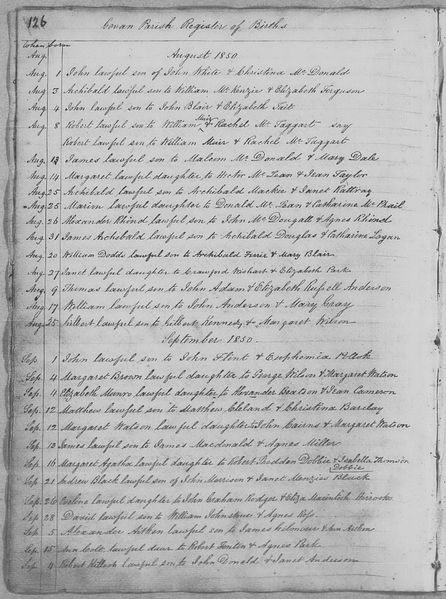 126
Govan Parish Register of Births
When born
Aug. August 1850
Aug. 1 John lawful son of John White & Christina Mc Donald
Aug. 3 Archibald lawful son to William Mc Kenzie & Elizabeth Ferguson
Aug. 4 John lawful son to John Blair & Elizabeth Tait
Aug. 8 Robert lawful son to William Muir & Rachel Mc Taggart say
Robert lawful son to William Muir & Rachel Mc Taggart
Aug. 19 James lawful son to Malcom Mc Donald & Mary Dale
Aug. 14 Margaret lawful daughter to Mc Lean & Jean Taylor
Aug. 25 Archibald lawful son to Archibald Mackie & Janet Rattray
Aug. 25 Marion lawful daughter to Donald Mc Bean & Catharine Mc Phail
Aug. 26 Alexander Rhind lawful son to John Mc Dougall & Agnes Rhind
Aug. 31 James Archibald lawful son to Archibald Douglas & Catharine Logan
Aug. 20 William Dodds lawful son to Archibald Ferrie & Mary Blair
Aug. 27 Janet lawful daughter to Crawford Wishart & Elizabeth Park
Aug. 9 Thomas lawful son to John Adam & Elizabeth Russell Anderson
Aug. 17 William lawful son to John Anderson & Mary Gray
Aug. 25 Gilbert lawful son to Gilbert Kennedy & Margaret Wilson
September 1850.
Sep. 1 John lawful son to John Flint & Euphemia
Sep. 4 Margaret Brown lawful daughter to George Wilson & Margaret Watson
Sep. 11 Elizabeth Munro lawful daughter to Alexander Beatson & Jean Cameron
Sep. 12 Matthew lawful son to Matthew Cleland & Christina Barclay
Sep. 12 Margaret Watson lawful daughter to John Cairns & Margaret Watson
Sep. 13 James lawful son to James Macdonald & Agnes Miller
Sep. 16 Margaret Agatha lawful daughter to Robert Dobbie & Isabella Thomson
Dobbie
Sep. 21 Andrew Black lawful son of John Morrison & Janet Menzies Black
Sep. 26 Eveline lawful daughter to John Graham Rodger & Eliza Macintosh
Sep. 28 David lawful son to William Johnstone & Agnes
Sep. 5 Alexander Aitken lawful son to James Kilmour & Ann Aitken
Sep. 15 Ann lawful daur. to Robert & Agnes Park
Sep. 4 Robert lawful son to John Donald & Janet Anderson